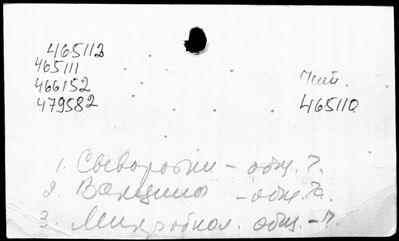 465112
465111
466152
479582
465110
1. Сыворотки – общ. ч.
2. Вакцины – общ. ч.
3. Микробиол. общ. – ч.